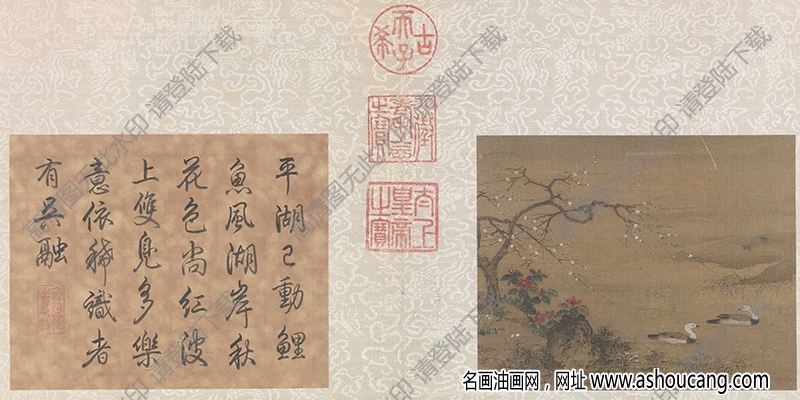 古希天子
太上皇帝之寶
平湖已動鯉
魚風湖岸秋
花色尚紅波
上雙鳧多樂
意依稀識者
有吳融
高清图无此水印·请登陆下载
名画油画网，网址 www.ashoucang.com